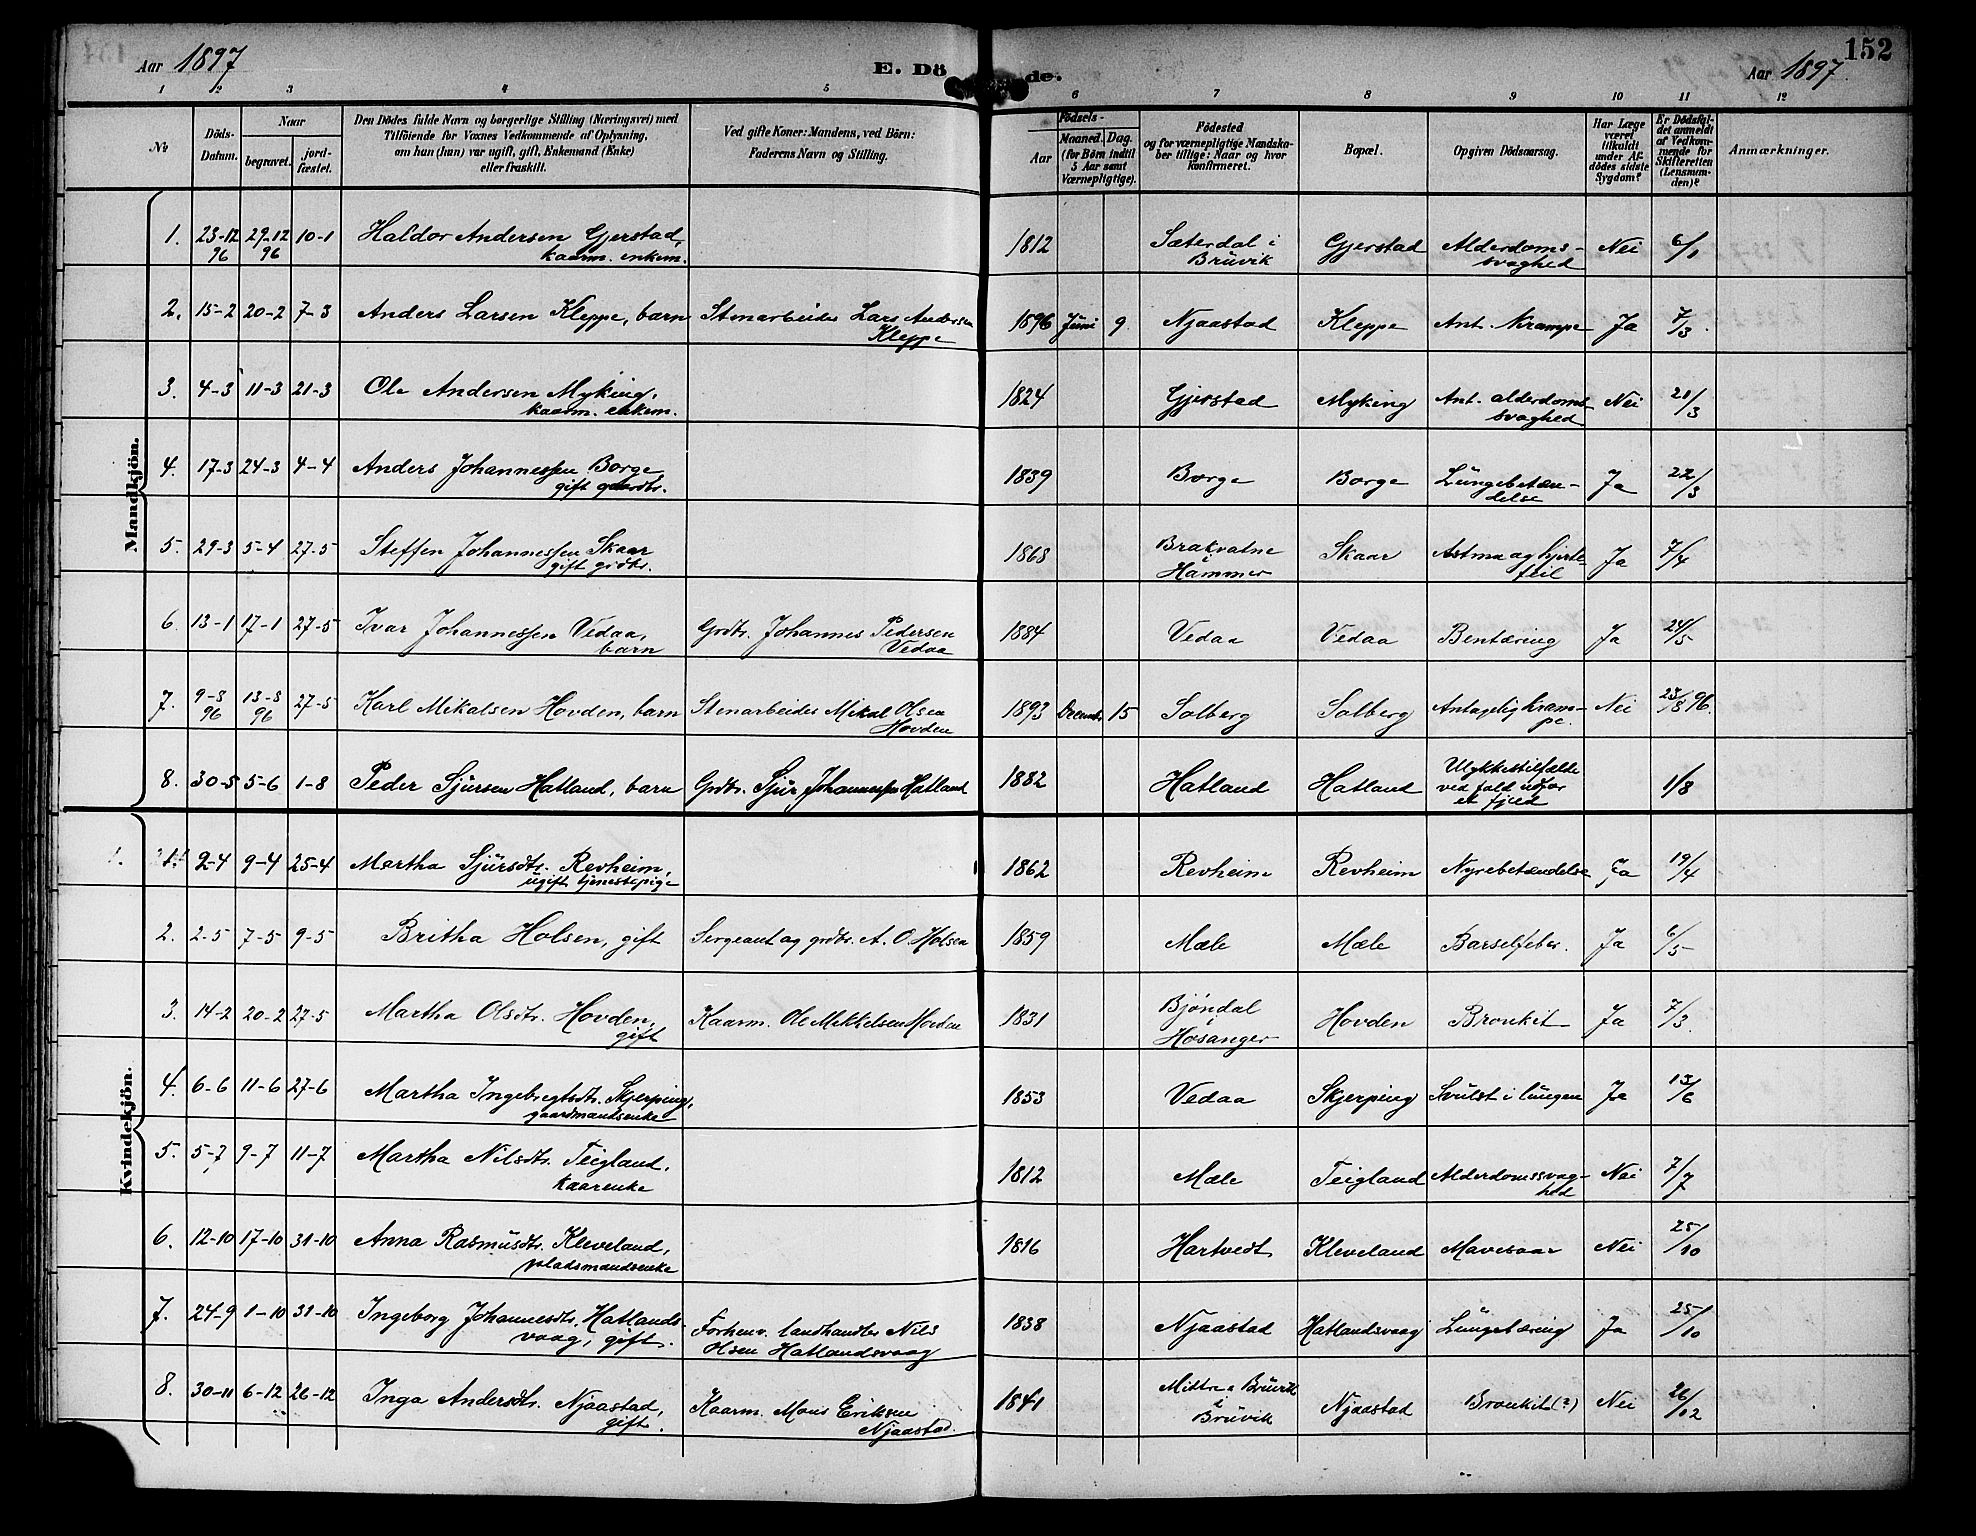 Aar 1897
E. Döde.
Aar 1897.
152
1 2 3 4 5 6 7 8 9 10 11 12
No
Döds-Datum.
Naar
begravet.
jord-fæstet.
Den Dödes fulde Navn og borgerlige Stilling (Næringsvei) med
Tilföiende for Voxnes Vedkommende af Oplysning,
om han (hun) var ugift, gift, Enkemand (Enke)
eller fraskilt.
Ved gifte Koner: Mandens, ved Börn:
Faderens Navn og Stilling.
Födsels-
Aar
Maaned. Dag.
(for Börn indtil
5 Aar samt
Værnepligtige).
Födested
og for værnepligtige Mandska-
ber tillige: Naar og hvor
konfirmeret.
Bopæl.
Opgiven Dödsaarsag.
Har Læge
været
tilkaldt
under Af-
dödes sidste
Sygdom?
Er Dödsfal-
det anmeldt
af Vedkom-
mende for
Skifteretten
(Lensman-
den)?
Anmærkninger.
Mandkjön.
1. 23-12 96 29-12 96 10-1 Haldor Andersen Gjerstad, kaarm. enkem. 1812 Sæterdal i Brüvik Gjerstad Alderdoms-svaghed Nei 6/1
2. 15-2 20-2 7-3 Anders Larsen Kleppe, barn Stenarbeider Lars Andersen Kleppe 1896 Juni 9. Njaastad Kleppe Ant. Krampe Ja 7/3.
3. 4-3 11-3 21-3 Ole Andersen Myking, kaarm. enkem. 1824 Gjerstad Myking Ant. alderdoms-svaghed Nei 21/3
4. 17-3 24-3 4-4 Anders Johannessen Borge gift gaardbr. 1839 Borge Borge Lüngebetæn-delse Ja 22/3
5. 29-3 5-4 27-5 Steffen Johannessen Skaar gift grdbr. 1868 Brakvatne Hammer Skaar Astma og hjerte-feil Ja 7/4
6. 13-1 17-1 27-5 Ivar Johannessen Vedaa, barn Grdbr. Johannes Pedersen Vedaa 1884 Vedaa Vedaa Bentæring Ja 24/5
7. 9-8 96 13-8 96 27-5 Karl Mikalsen Hovden, barn Stenarbeider Mikal Olsen Hovden 1893 Decembr. 15 Solberg Solberg Antagelig kram-pe. Nei 23/8 96.
8. 30-5 5-6 1-8 Peder Sjursen Hatland, barn Grdbr. Sjur Johannessen Hatland 1882 Hatland Hatland Ulykkestilfælde ved fald udfor et fjeld 1/8
Kvindekjön.
1. 2-4 9-4 25-4 Martha Sjürsdtr. Revheim, ugift tjenestepige 1862 Revheim Revheim Nyrebetændelse Ja 19/4
2. 2-5 7-5 9-5 Britha Holsen, gift Sergeant og grdbr. A. O. Holsen 1859 Mæle Mæle Barselfeber. Ja 6/5
3. 14-2 20-2 27-5 Martha Olsdtr. Hovden, gift Kaarm. Ole Mikkelsen Hovden 1831 Bjøndal Hosanger Hovden Bronkit Ja 7/3.
4. 6-6 11-6 27-6 Martha Ingebregtsdtr. Skjerping, gaardmandsenke 1853 Vedaa Skjerping Svulst i lungen Ja 13/6
5. 5-7 9-7 11-7 Martha Nilsdtr. Teigland, kaarenke 1812 Mæle Teigland Alderdomssvag-hed Nei 7/7
6. 12-10 17-10 31-10 Anna Rasmusdtr. Kleveland, pladsmandsenke 1816 Hartvedt Kleveland Mavesaar Nei 25/10
7. 24-9 1-10 31-10 Ingeborg Johannesdtr. Hatlands-vaag, gift. Forhenv. landhandler Nils Olsen Hatlandsvaag 1838 Njaastad Hatlandsvaag Lüngetæring Ja 25/10
8. 30-11 6-12 26-12 Inga Andersdtr. Njaastad, gift. Kaarm. Mons Eriksen Njaastad. 1841 Brüvik i Brüvik Njaastad Bronkit (?) Nei 26/12